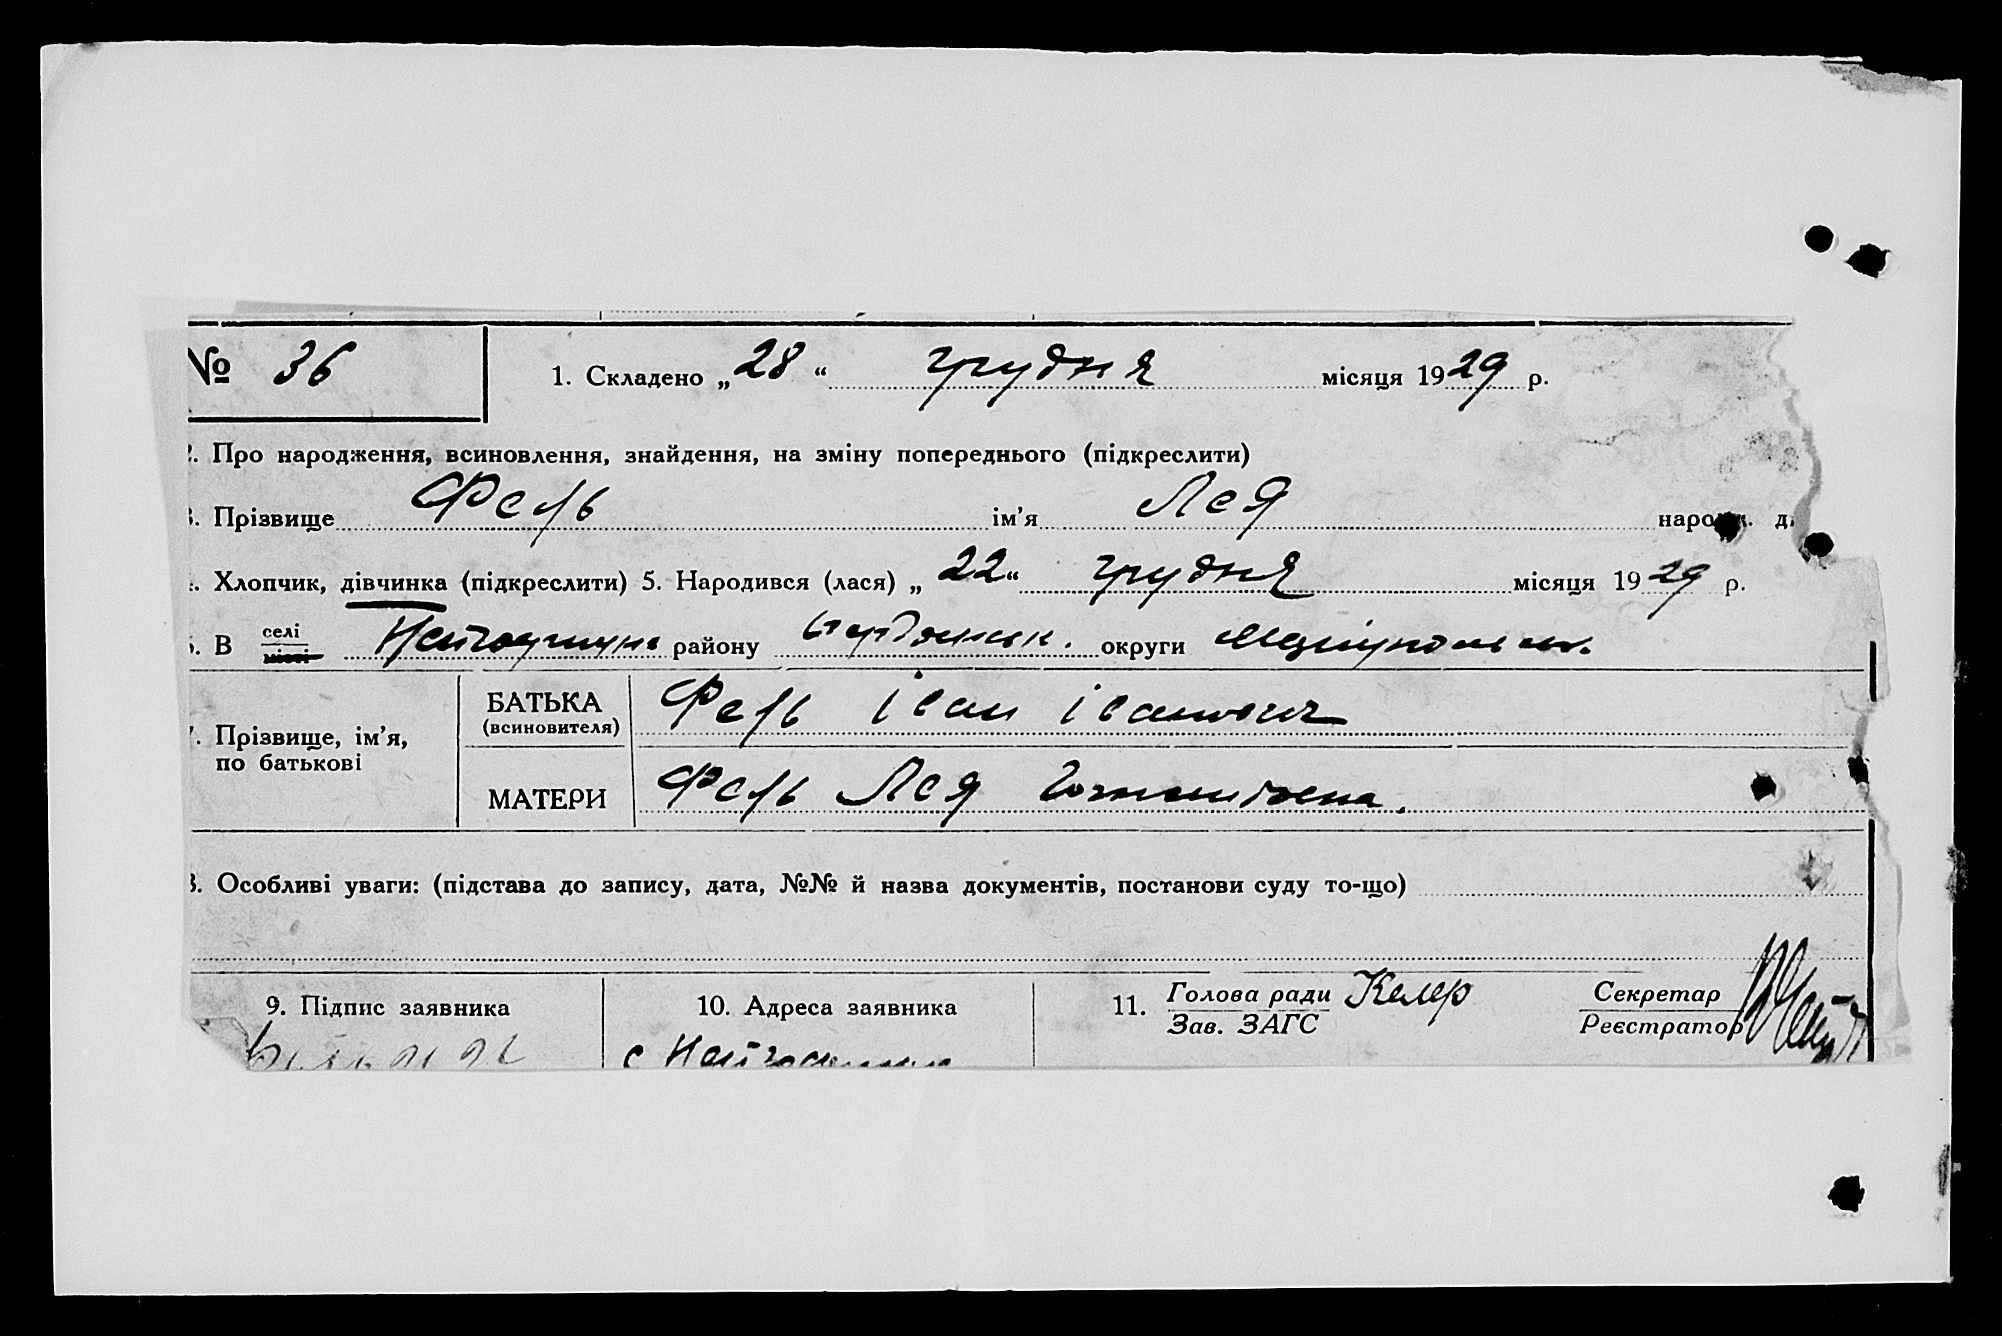 № 36 1. Складено „ 28 “ грудня місяця 1929 р.
2. Про народження, всиновлення, знайдення, на зміну попереднього (підкреслити)
3. Прізвище Фель ім’я Лея
4. Хлопчик, дівчинка (підкреслити) 5. Народився (лася) „ 22 “ грудня місяця 1929 р.
6. В селі місті району Бердянськ. округи
БАТЬКА Фель Іван Іванович
(всиновителя)
7. Прізвище, ім’я,
по батькові
МАТЕРИ Фель Лея
8. Особливі уваги: (підстава до запису, дата, №№ й назва документів, постанови суду то-що)
9. Підпис заявника 10. Адреса заявника 11. Голова ради Келер Секретар
Зав. ЗАГС Реєстратор
с